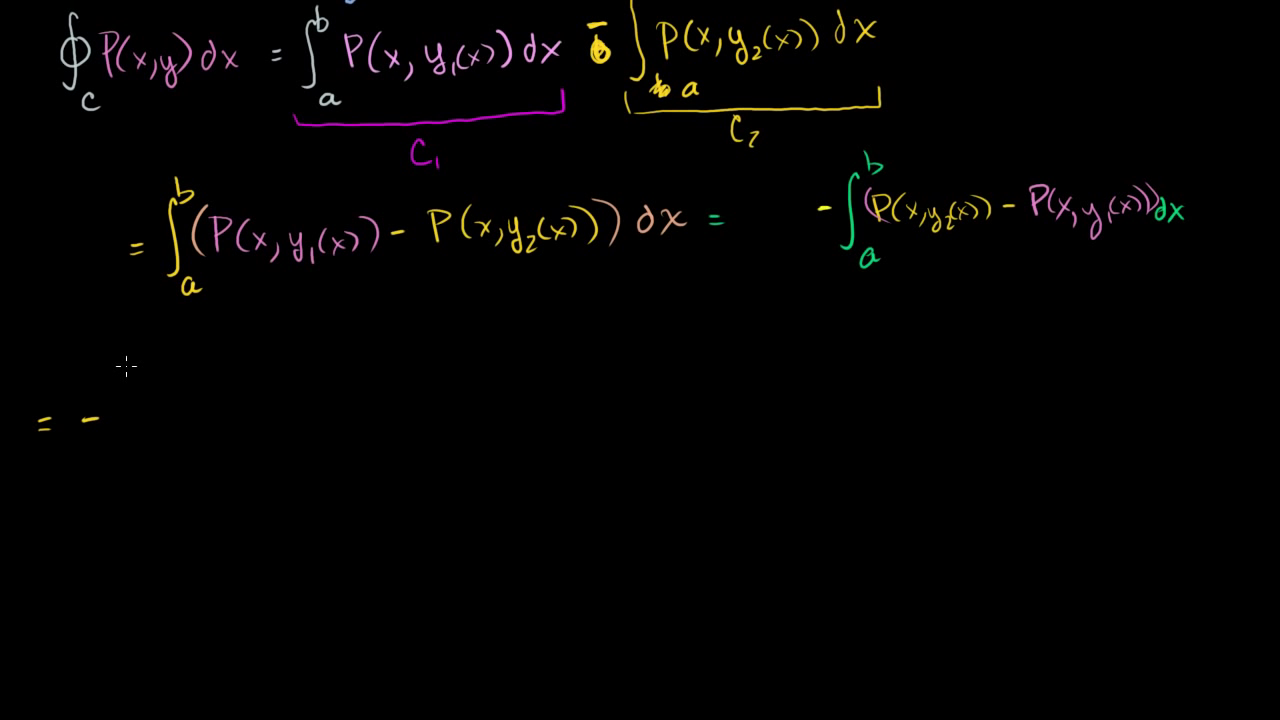 ∮_C P(x,y) dx = ∫_a^b P(x, y₁(x)) dx - ∫_a P(x, y₂(x)) dx
C₁ C₂
= ∫_a^b (P(x, y₁(x)) - P(x, y₂(x))) dx = - ∫_a^b (P(x, y₂(x)) - P(x, y₁(x))) dx
= -